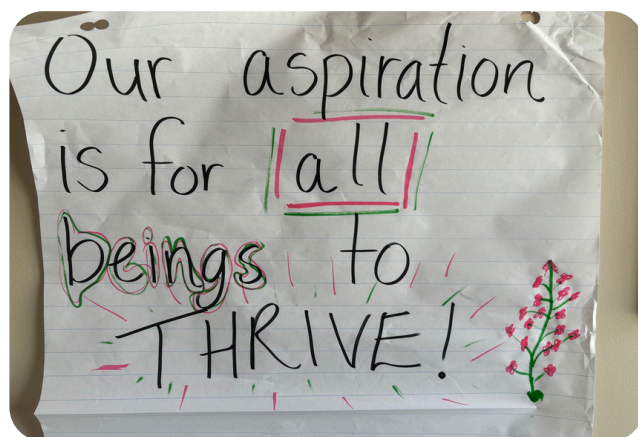 Our aspiration
is for all
beings to
THRIVE!